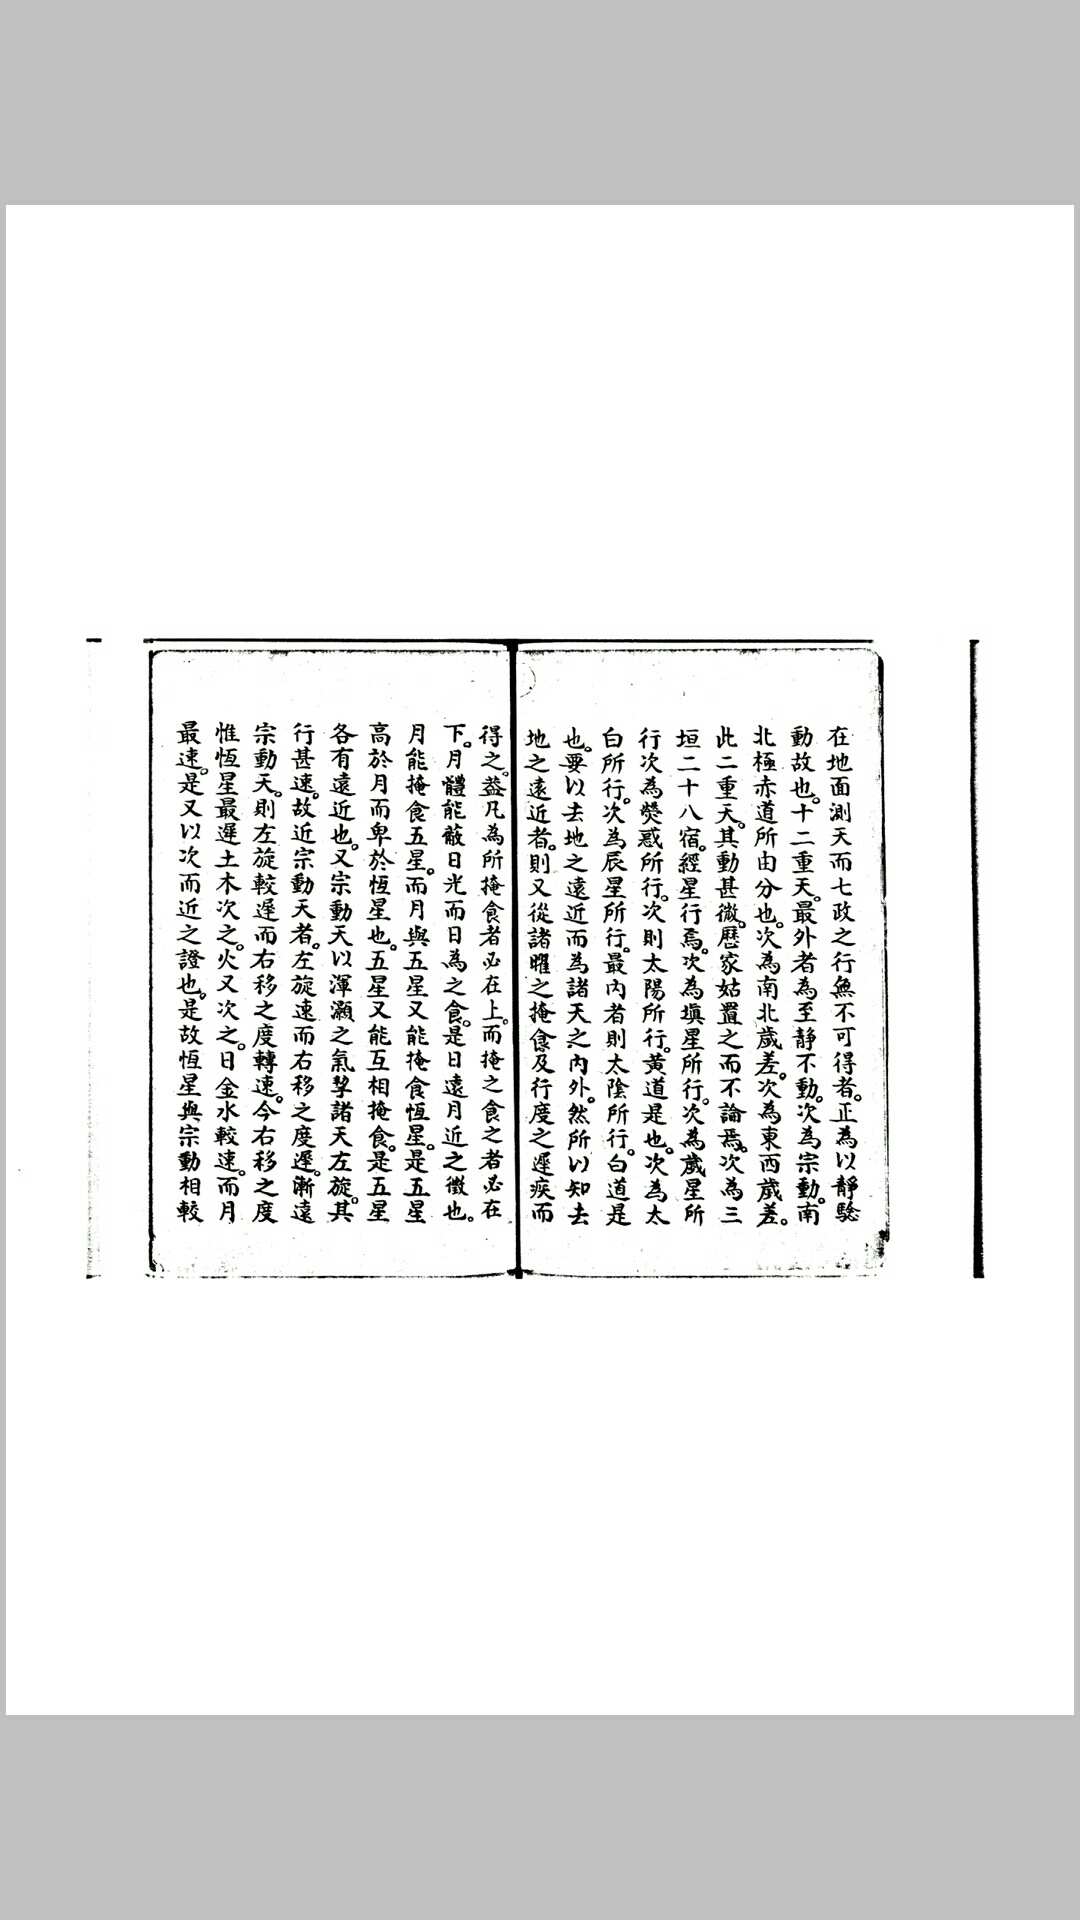 在地面測天而七政之行無不可得者。正為以靜騐
動故也。十二重天。最外者為至靜不動。次為宗動。南
北極赤道所由分也。次為南北歲差。次為東西歲差。
此二重天。其動甚微。歷家姑置之而不論焉。次為三
垣二十八宿。經星行焉。次為塡星所行。次為歲星所
行次為熒惑所行。次則太陽所行。黃道是也。次為太
白所行。次為辰星所行。最內者則太陰所行。白道是
也。要以去地之遠近而為諸天之內外。然所以知去
地之遠近者。則又從諸曜之掩食及行度之遲疾而
得之。葢凡為所掩食者必在上。而掩之食之者必在
下。月體能蔽日光而日為之食。是日遠月近之徵也。
月能掩食五星。而月與五星又能掩食恆星。是五星
高於月而卑於恆星也。五星又能互相掩食。是五星
各有遠近也。又宗動天以渾灝之氣挈諸天左旋。其
行甚速。故近宗動天者。左旋速而右移之度遲。漸遠
宗動天。則左旋較遲而右移之度轉速。今右移之度
惟恆星最遲土木次之。火又次之。日金水較速。而月
最速。是又以次而近之證也。是故恆星與宗動相較